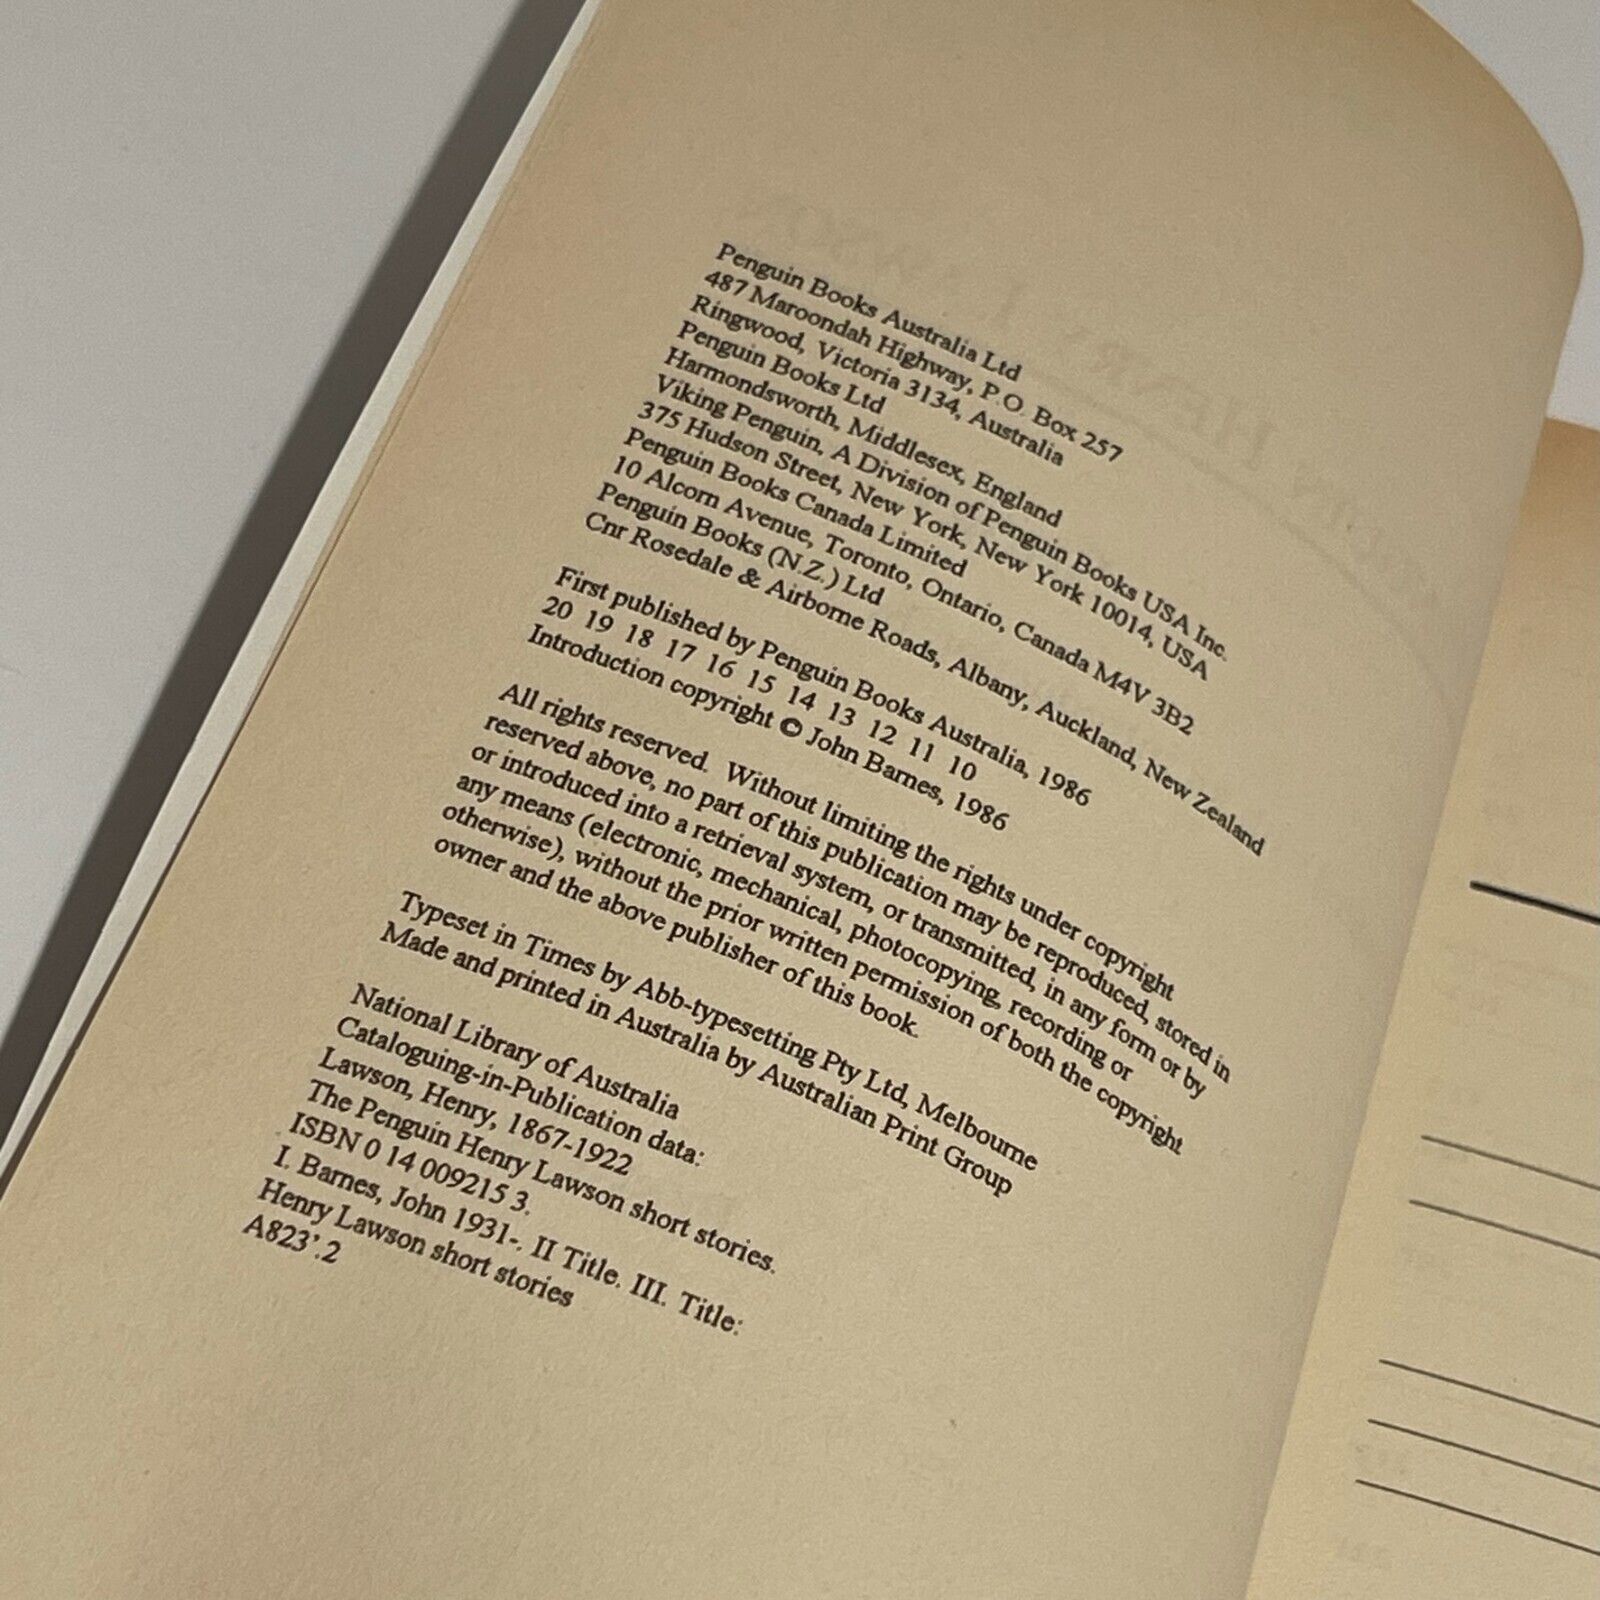 Penguin Books Australia Ltd
487 Maroondah Highway, P.O. Box 257
Ringwood, Victoria 3134, Australia
Penguin Books Ltd
Harmondsworth, Middlesex, England
Viking Penguin, A Division of Penguin Books USA Inc.
375 Hudson Street, New York, New York 10014, USA
Penguin Books Canada Limited
10 Alcorn Avenue, Toronto, Ontario, Canada M4V 3B2
Penguin Books (N.Z.) Ltd
Cnr Rosedale & Airborne Roads, Albany, Auckland, New Zealand
First published by Penguin Books Australia, 1986
20 19 18 17 16 15 14 13 12 11 10
Introduction copyright © John Barnes, 1986
All rights reserved. Without limiting the rights under copyright
reserved above, no part of this publication may be reproduced, stored in
or introduced into a retrieval system, or transmitted, in any form or by
any means (electronic, mechanical, photocopying, recording or
otherwise), without the prior written permission of both the copyright
owner and the above publisher of this book.
Typeset in Times by Abb-typesetting Pty Ltd, Melbourne
Made and printed in Australia by Australian Print Group
National Library of Australia
Cataloguing-in-Publication data:
Lawson, Henry, 1867-1922
The Penguin Henry Lawson short stories.
ISBN 0 14 009215 3.
I. Barnes, John 1931-. II Title. III. Title:
Henry Lawson short stories
A823'.2